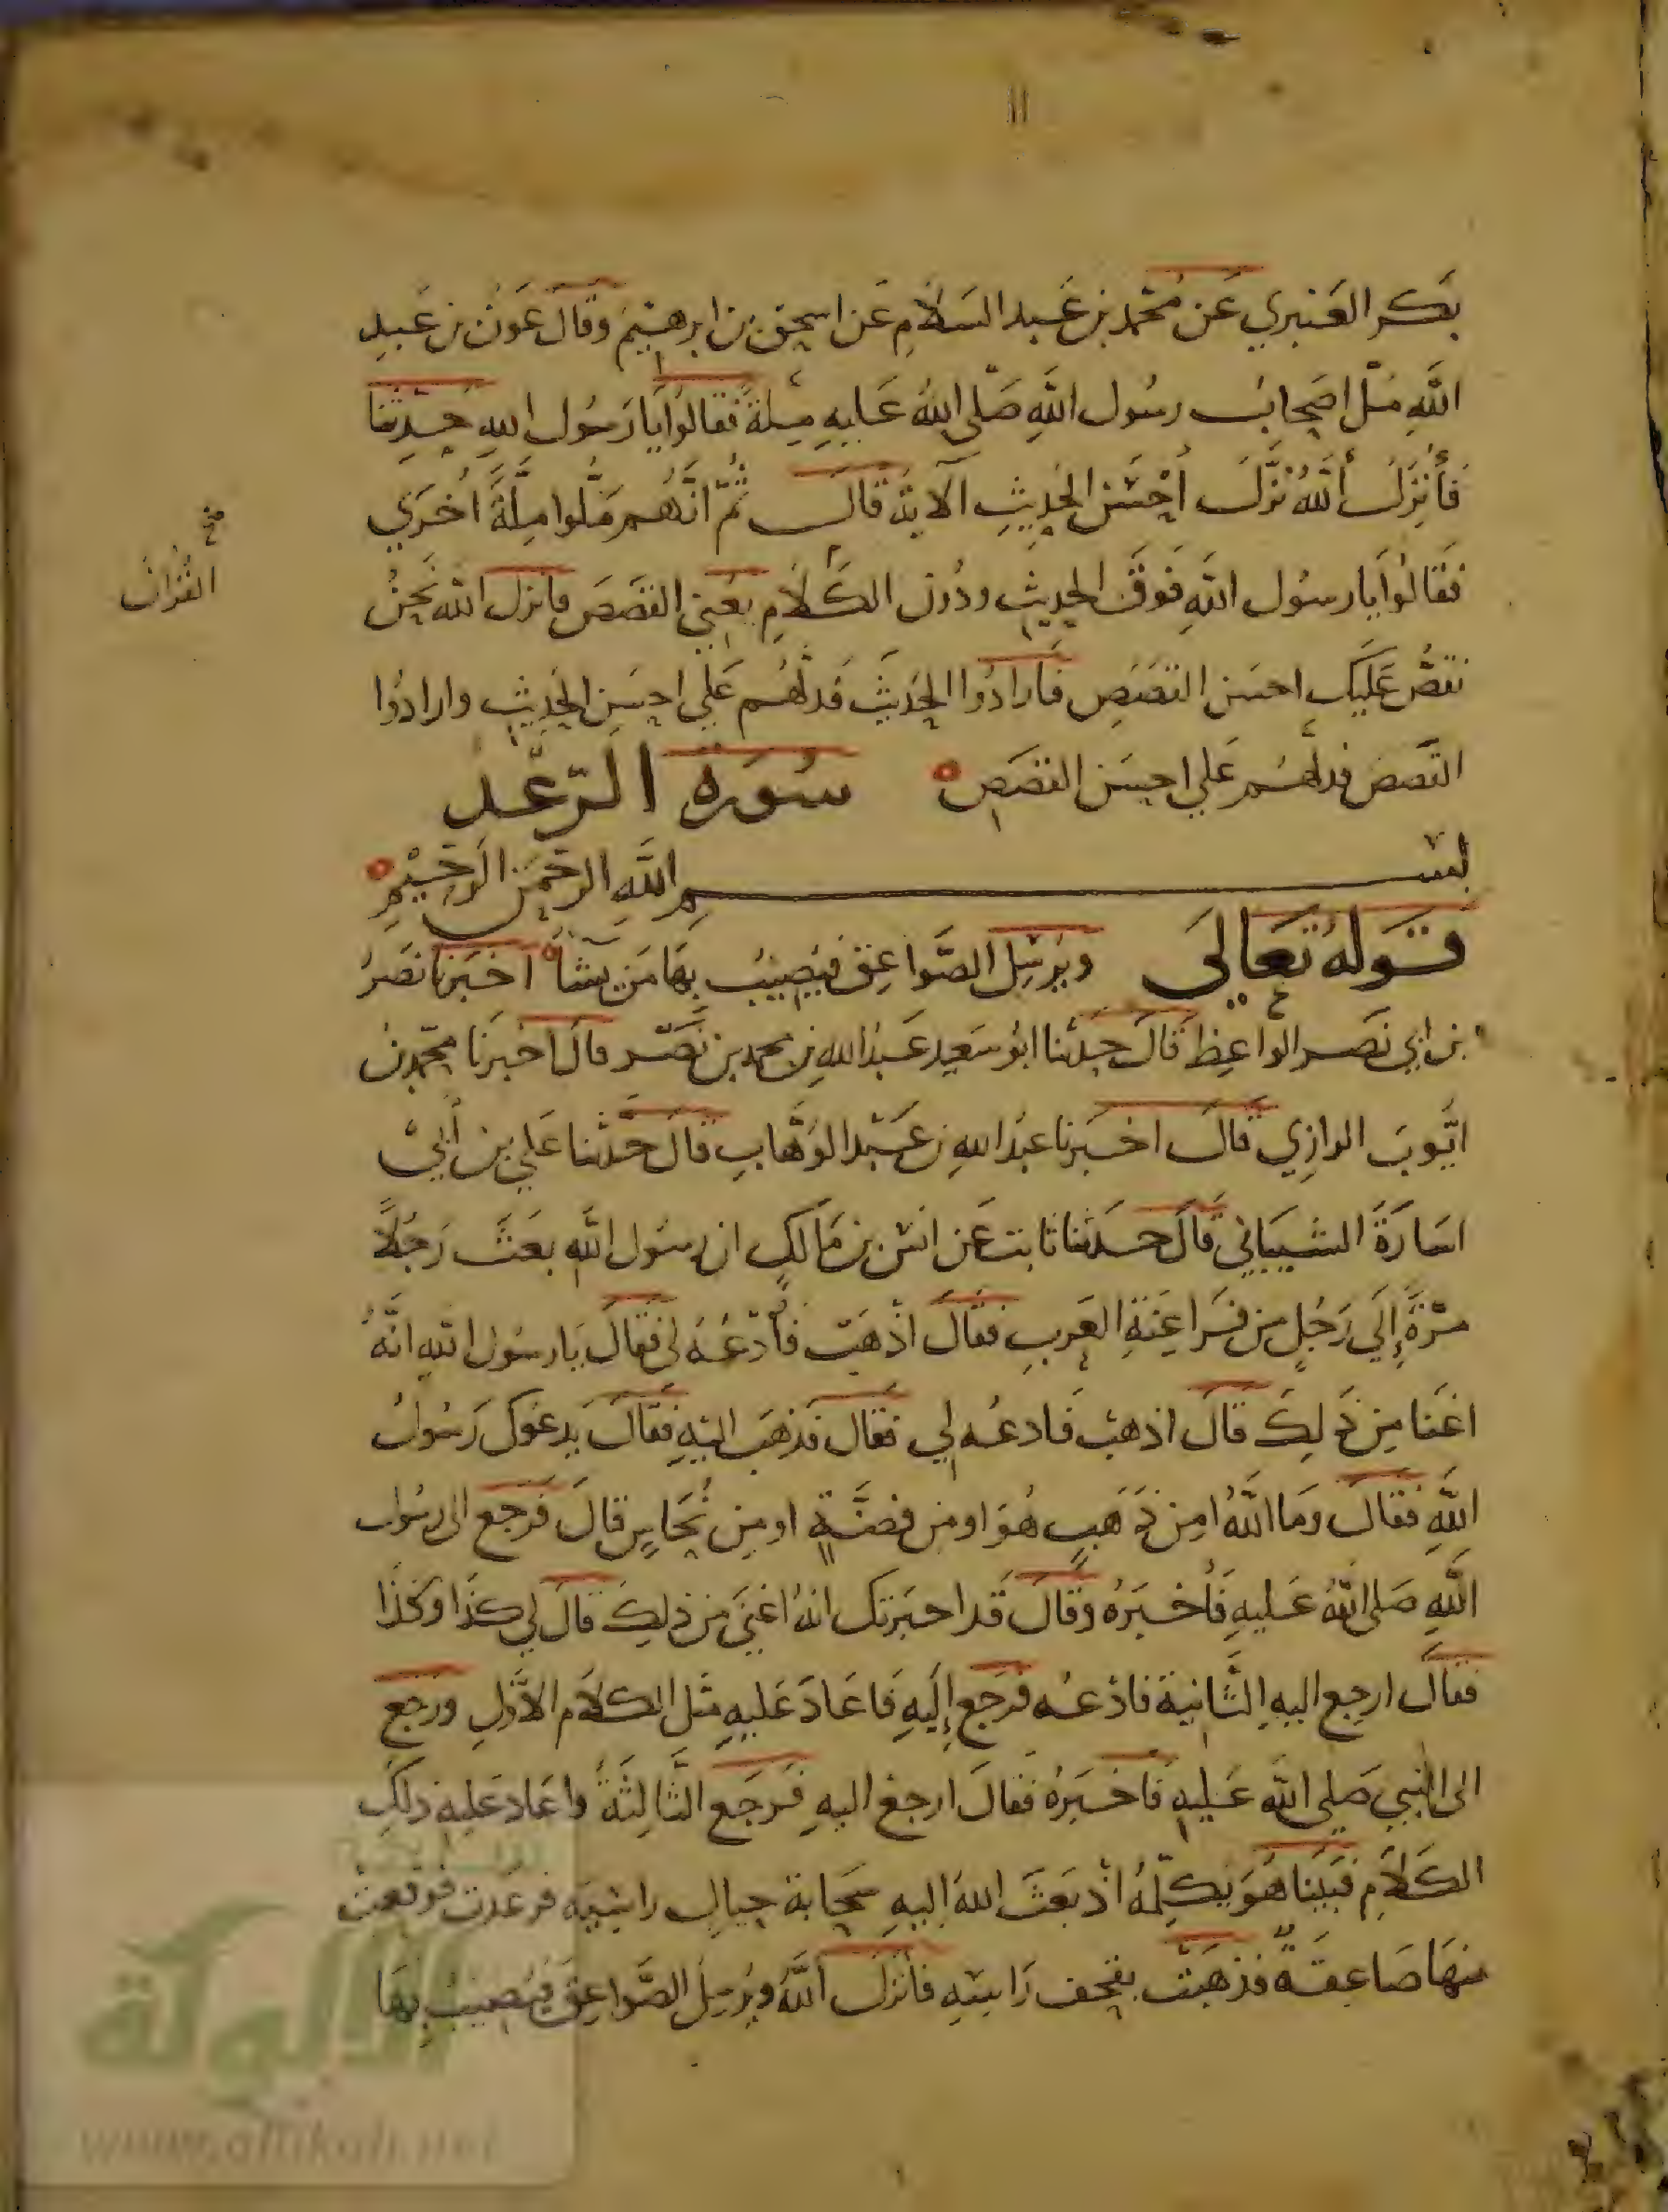 بكر العنبري عن محمد بن عبد السلام عن اسحق بن ابرهيم وقال عون بن عبد
الله مل اصحاب رسول الله صلى الله عليه ملة فقالوا يا رسول الله حدثنا
فأنزل الله نزل أحسن الحديث الآية قال ثم انهم ملوا ملة أخري
فقالوا يا رسول الله فوق الحديث ودون الكلام يعني القصص فانزل الله نحن
القران
نقص عليك احسن القصص فارادوا الحديث فدلهم علي احسن الحديث وارادوا
القصص فدلهم علي احسن القصص سورة الرعد
بسم الله الرحمن الرحيم
قوله تعالى ويرسل الصواعق فيصيب بها من يشآ اخبرنا نصر
بن ابي نصر الواعظ قال حدثنا ابو سعيد عبد الله بن محمد بن نصر قال اخبرنا محمد بن
ايوب الرازي قال اخبرنا عبد الله بن عبد الوهاب قال حدثنا علي بن أبي
اسارة الشيباني قال حدثنا ثابت عن انس بن مالك ان رسول الله بعث رجلا
مرة إلى رجل من فراعنة العرب فقال اذهب فأدعه لى فقال يا رسول الله انه
اعنا من ذلك قال اذهب فادعه لي فقال فذهب اليه فقال يدعوك رسول
الله فقال وما الله امن ذهب هو او من فضة او من نحاس قال فرجع الى رسول
الله صلى الله عليه فأخبره وقال قد اخبرتك انه اعتى من ذلك قال لي كذا وكذا
فقال ارجع اليه الثانية فادعه فرجع إليه فاعاد عليه مثل الكلام الاول ورجع
الى النبي صلى الله عليه فاخبره فقال ارجع اليه فرجع الثالثة واعاد عليه ذلك
الكلام فبينا هو يكلمه اذ بعث الله اليه سحابة حيال راسه فرعدت فوقعت
منها صاعقة فذهبت بقحف راسه فأنزل الله ويرسل الصواعق فيصيب بها
الألوكة